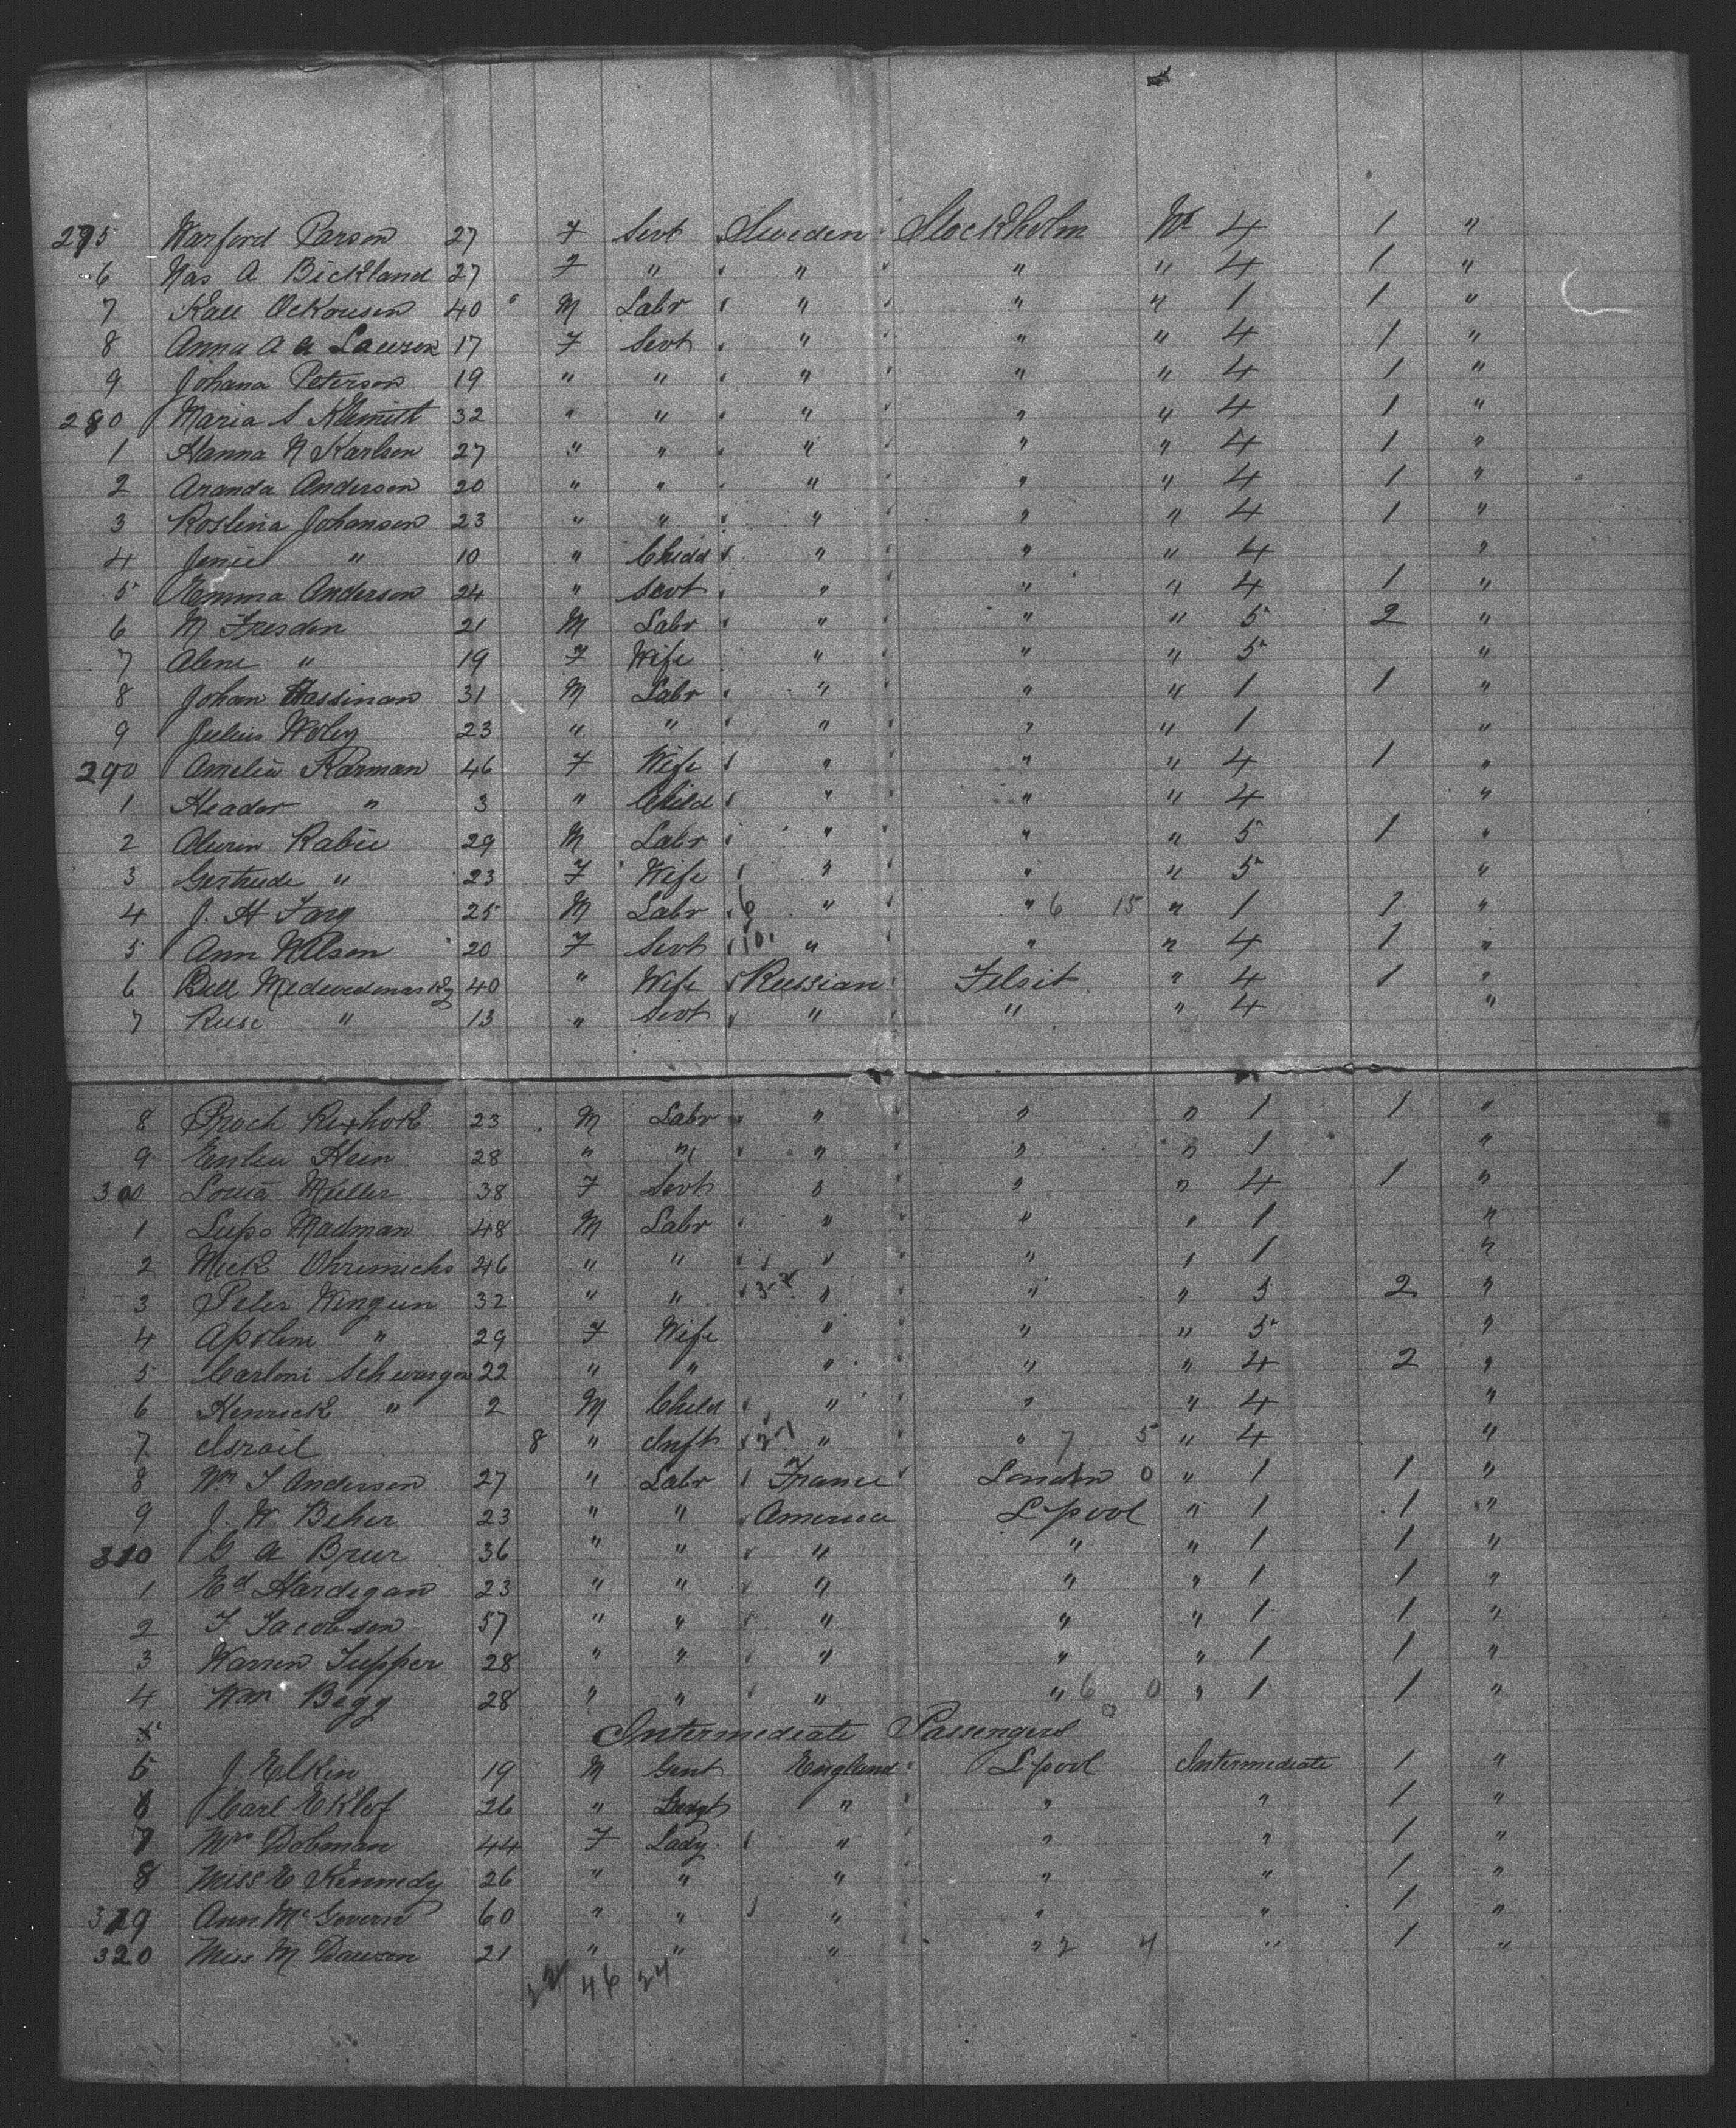 275 Warford Parson 27 F Servt Sweden Stockholm Wt 4 1 "
6 Mas A Bickland 27 F " " " " 4 1 "
7 Kall Ockonsen 40 M Labr " " " 1 1 "
8 Anna A a Lawson 17 F Servt " " " 4 1 "
9 Johana Peterson 19 " " " " " 4 1 "
280 Maria S 32 " " " " " 4 1 "
1 Hanna N Karlson 27 " " " " " 4 1 "
2 Aranda Anderson 20 " " " " " 4 1 "
3 Roslina Johanson 23 " " " " " 4 1 "
4 " 10 " Child " " " 4 "
5 Emma Anderson 24 " Servt " " " 4 1 "
6 M Fresden 21 M Labr " " " 5 2 "
7 Alene " 19 F Wife " " " 5 "
8 Johan Hassinan 31 M Labr " " " 1 1 "
9 Julius 23 " " " " " 1 "
290 Amelia Karman 46 F Wife " " " 4 1 "
1 Heador " 3 " Child " " " 4 "
2 Alwin Rabie 29 M Labr " " " 5 1 "
3 Gertrude " 23 F Wife " " " 5 "
4 J. H Farg 25 M Labr 6 " " 6 15 " 1 1 "
5 Ann Wilson 20 F Servt 10 " " " 4 1 "
6 Bell 40 " Wife Russian Tilsit " 4 1 "
7 Ruse " 13 " Servt " " " 4 "
8 Proch 23 M Labr " " " 1 1 "
9 Hein 28 " " " " " 1 "
300 Louia Muller 38 F Servt " " " 4 1 "
1 Lups Madman 48 M Labr " " " 1 "
2 Mick 46 " " " " " 1 "
3 Peter Wingun 32 " " " " " 5 2 "
4 Apolini " 29 F Wife " " " 5 "
5 Carloni Schwargen 22 " " " " " 4 2 "
6 Henrick " 2 M Child " " " 4 "
7 Israil 8 " Inft " " 7 5 " 4 "
8 Wm J Anderson 27 " Labr France London 0 " 1 1 "
9 J. W Beher 23 " " America L'pool " 1 1 "
310 G A Brur 36 " " " " " 1 1 "
1 Ed Hardigan 23 " " " " " 1 1 "
2 F Jacobson 57 " " " " " 1 1 "
3 Warren Tupper 28 " " " " " 1 1 "
4 Wm Begg 28 " " " " 6 0 " 1 1 "
Intermediate Passengers
5 J. Elkin 19 M Gent England L'pool Intermediate 1 "
6 Carl Eklof 26 " " " " 1 "
7 Mrs Dobman 44 F Lady " " " 1 "
8 Miss E Kennedy 26 " " " " " 1 "
319 Ann McGovern 60 " " " " " 1 "
320 Miss M Dawson 21 " " " " 2 4 " 1 "
46 24